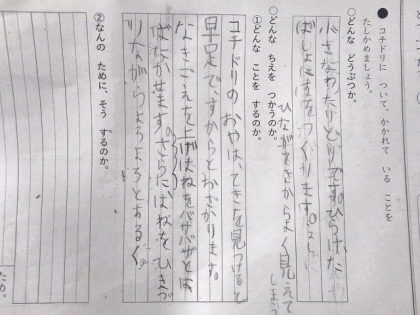 ●コチドリに ついて、かかれて いる ことを
たしかめましょう。
○どんな どうぶつか。
小さなわたりどりです。ひらけた
ばしょにすをつくります。
ひながてきからよく見えて
しまう
○どんな ちえを つかうのか。
①どんな ことを するのか。
コチドリのおやは、てきを見つけると
早足ですからとおざかります。
なきごえを上げはねをバサバサとは
ばたかせます。さらに、はねをひきず
りながらよろよろとするく。
②なんの ために、そう するのか。
たか。